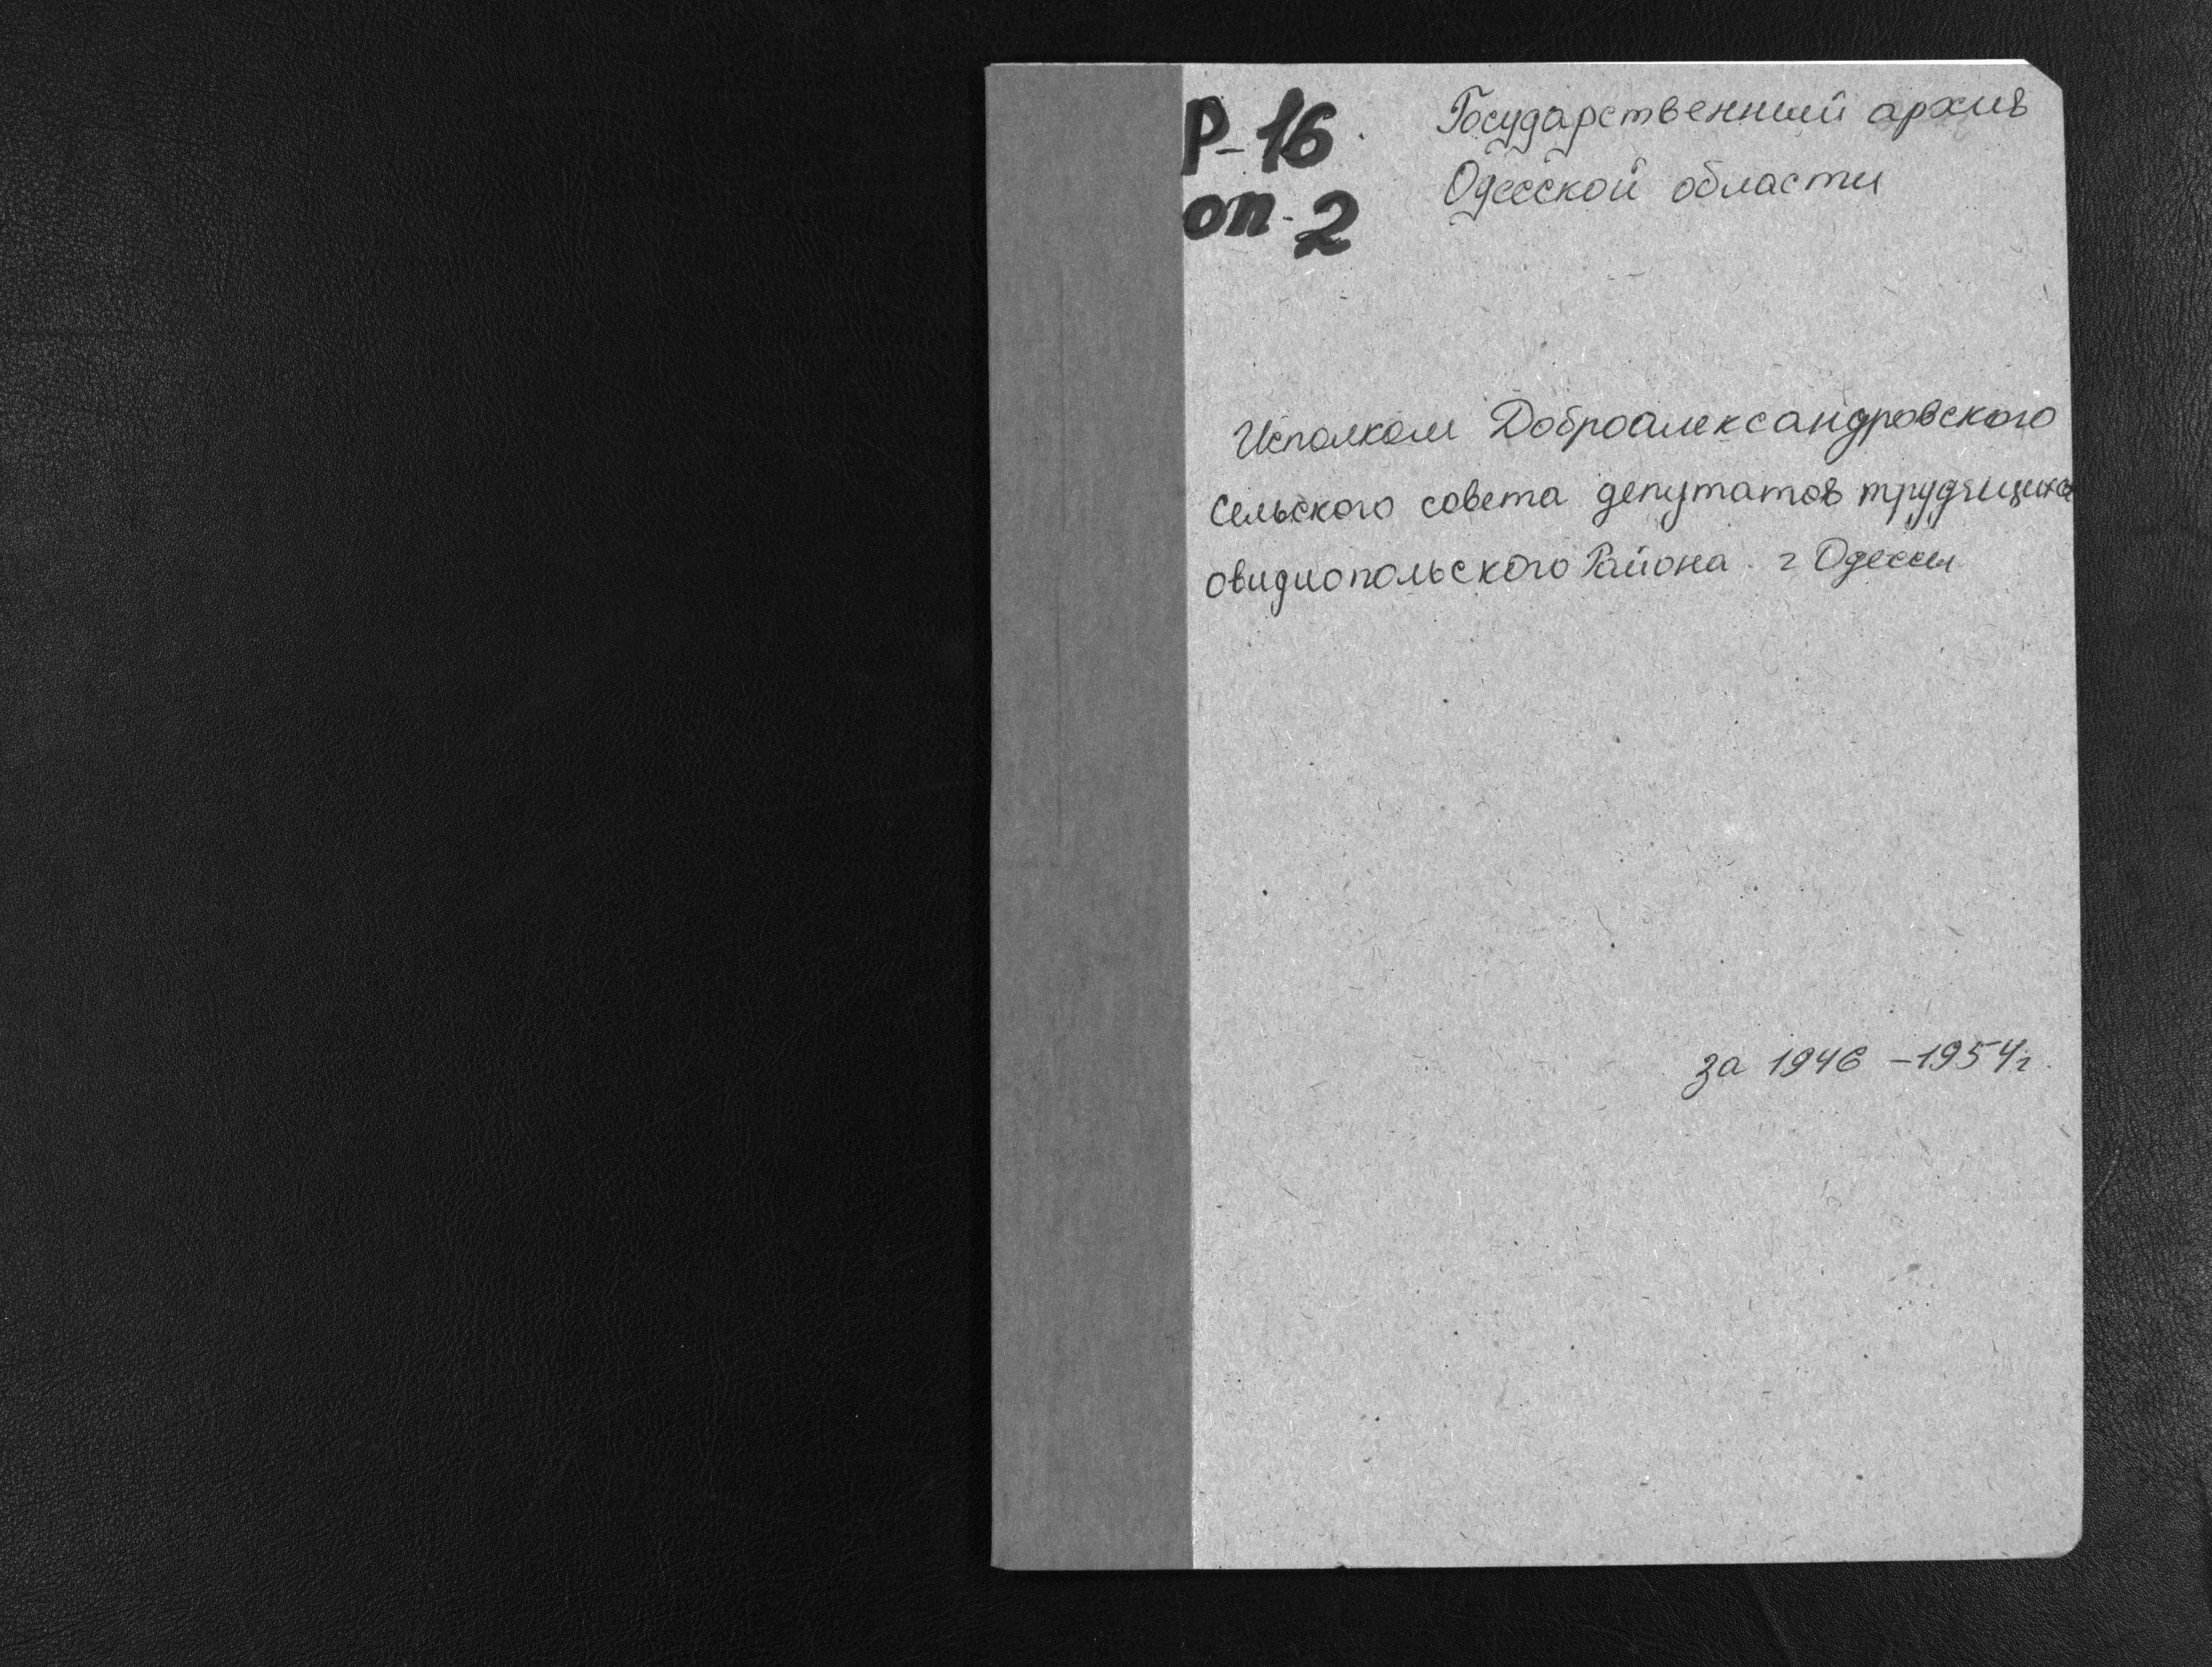 Р-16
оп-2
Государственный архив
Одесской области
Исполком Доброалександровского
Сельского совета депутатов трудящихся
овидиопольского Района г Одессы
за 1946 - 1954г.